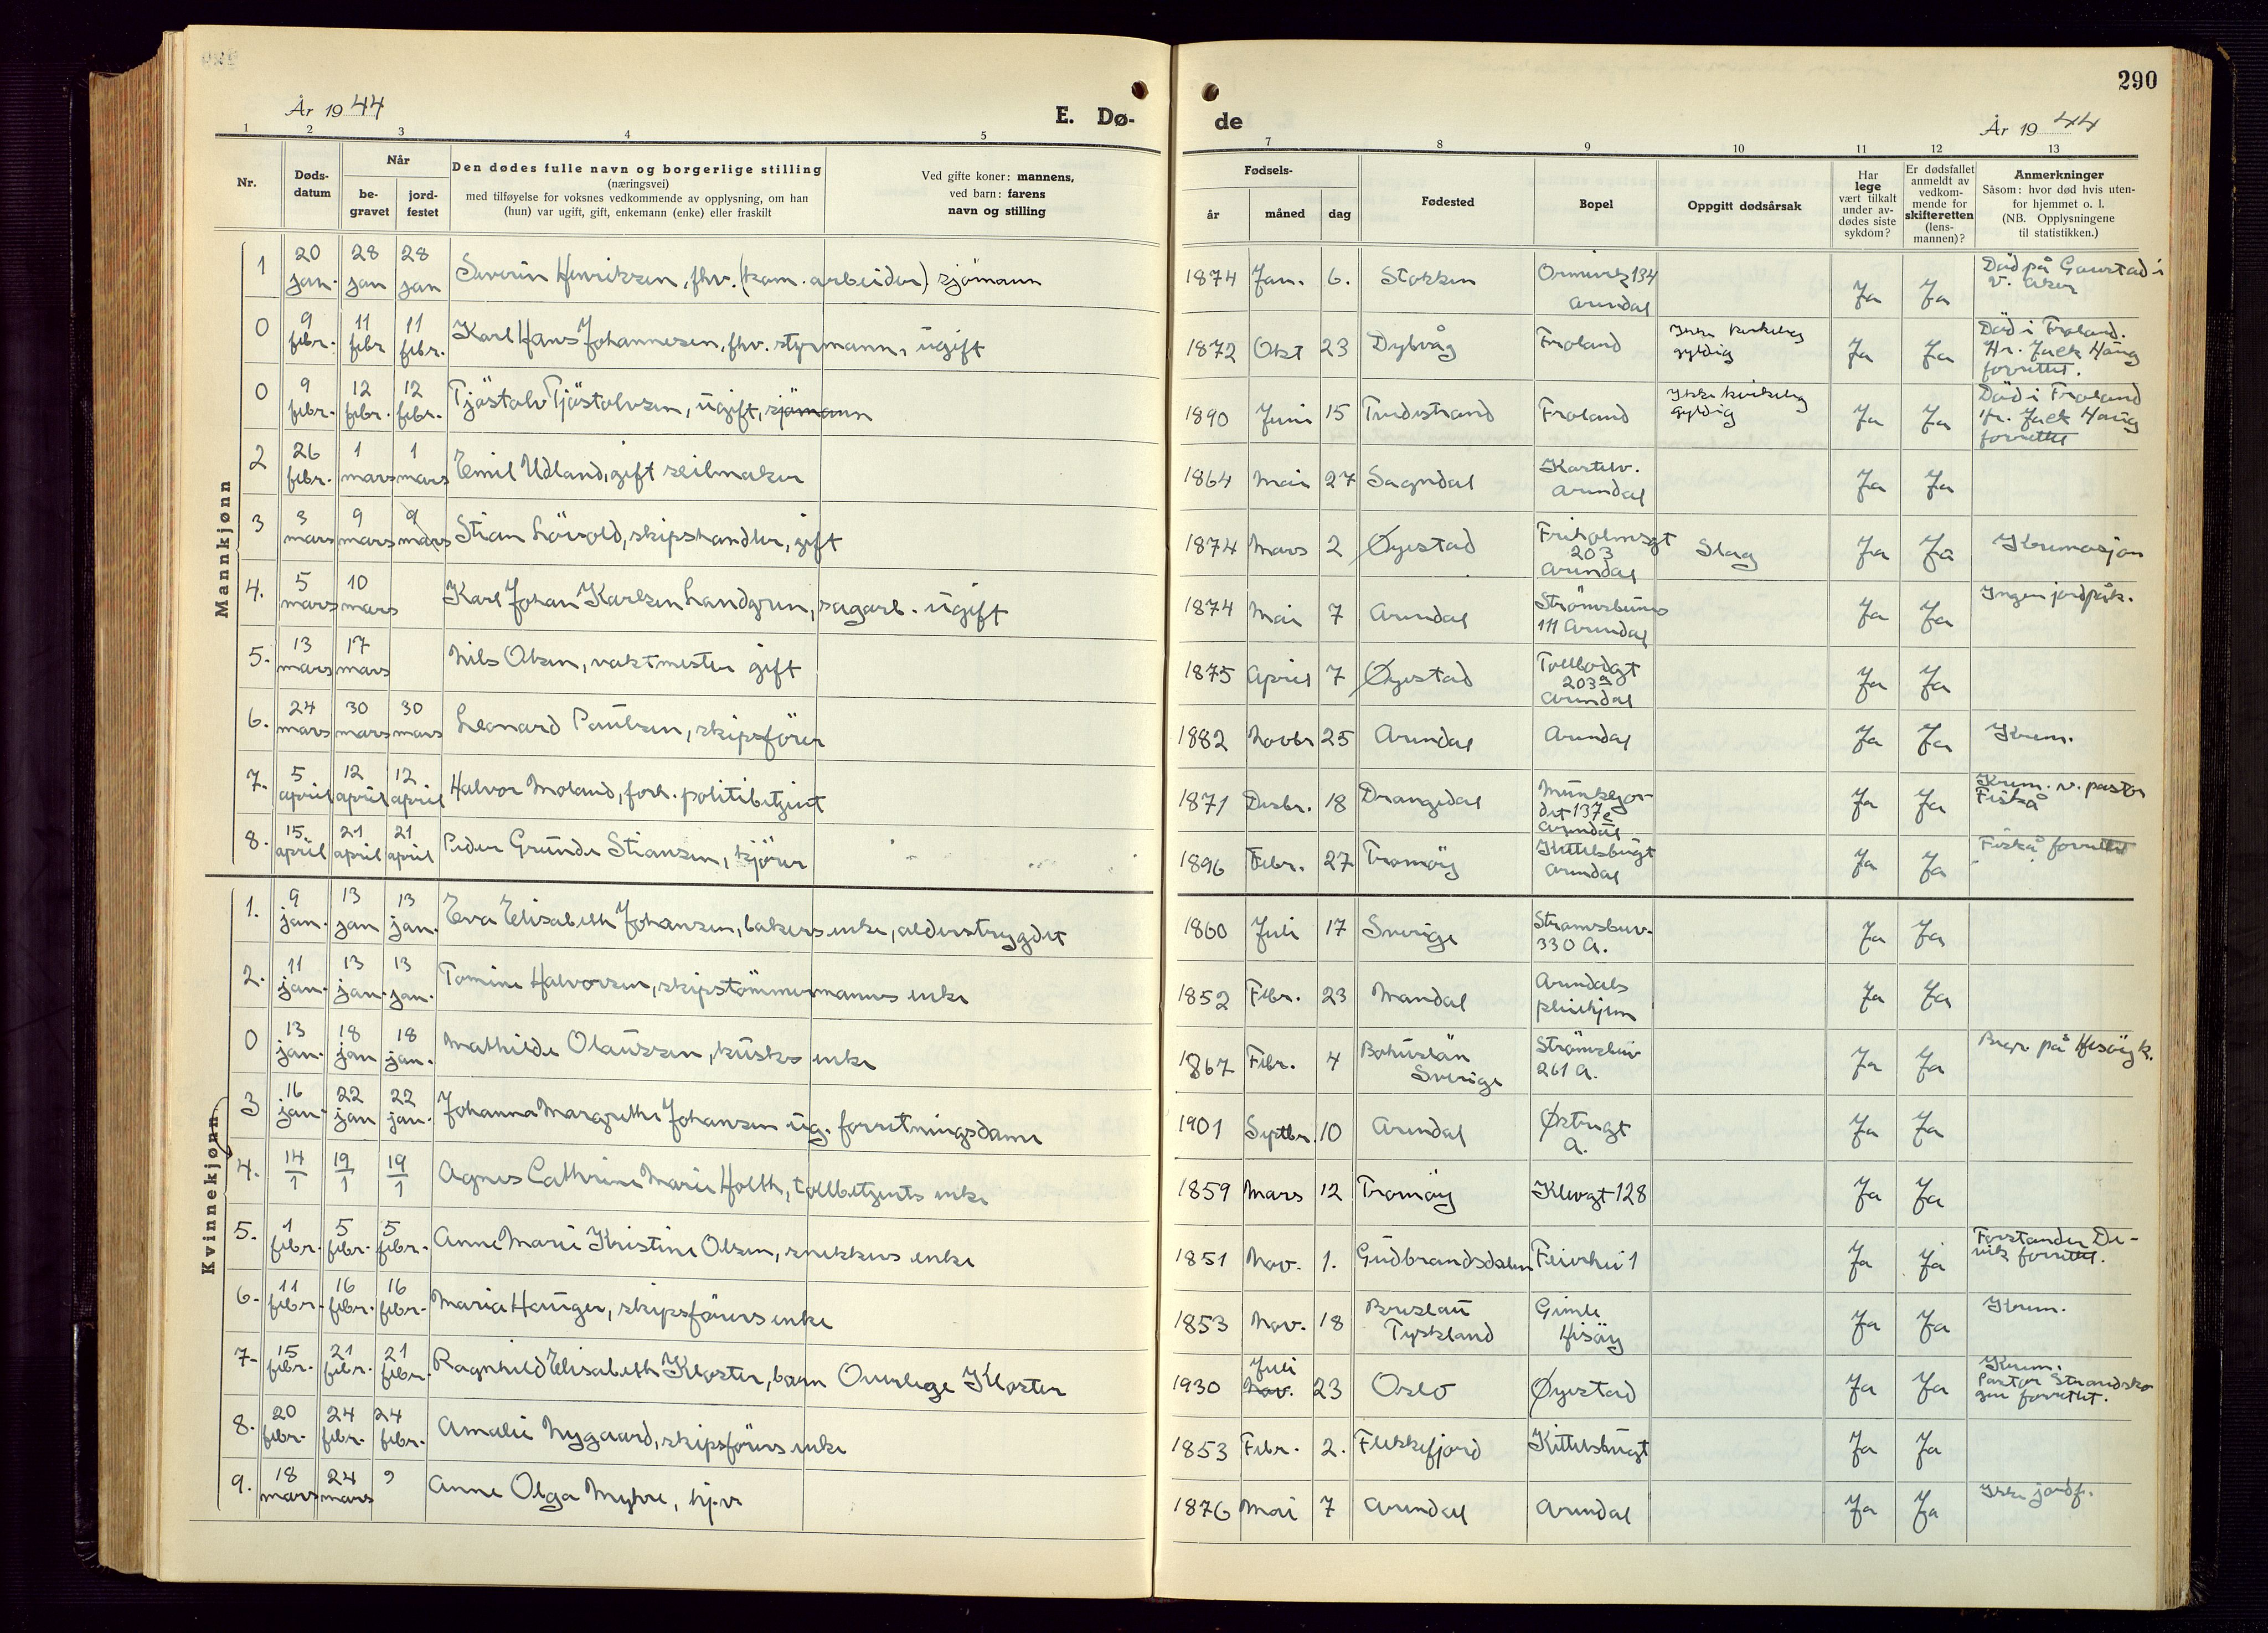 290
År 1944
E. Dø-
de
År 1944
1 2 3 4 5 7 8 9 10 11 12 13
Nr.
Døds-
datum
Når
be-
gravet
jord-
festet
Den dødes fulle navn og borgerlige stilling
(næringsvei)
med tilføyelse for voksnes vedkommende av opplysning, om han
(hun) var ugift, gift, enkemann (enke) eller fraskilt
Ved gifte koner: mannens,
ved barn: farens
navn og stilling
Fødsels-
år
måned
dag
Fødested
Bopel
Oppgitt dødsårsak
Har
lege
vært tilkalt
under av-
dødes siste
sykdom?
Er dødsfallet
anmeldt av
vedkom-
mende for
skifteretten
(lens-
mannen)?
Anmerkninger
Såsom: hvor død hvis uten-
for hjemmet o. l.
(NB. Opplysningene
til statistikken.)
Mannkjønn
1 20 jan. 28 jan 28 jan Severin Henriksen, fhv. (kom. arbeider) sjömann 1874 Jan. 6. Stokken 134 Arendal Ja Ja Död på Gaustad i V. Aker
0 9 febr. 11 febr 11 febr. Karl Hans Johannesen, fhv. styrmann, ugift 1872 Okt 23 Dybvåg Froland Ikke kirkelig gyldig Ja Ja Död i Froland. Hr. Jack Haug forrettet.
0 9 febr. 12 febr. 12 febr. Tjöstolv Tjöstolvsen, ugift, sjömann 1890 Juni 15 Tvedestrand Froland Ikke kirkelig gyldig Ja Ja Död i Froland Hr. Jack Haug forrettet
2 26 febr. 1 mars 1 mars Emil Udland, gift seilmaker 1864 Mai 27 Sogndal Kastelv. Arendal Ja Ja
3 3 mars 9 mars 9 mars Stian Lövold, skipshandler, gift 1874 Mars 2 Øyestad Friholmsgt 203 Arendal Slag Ja Ja Kremasjon
4. 5 mars 10 mars Karl Johan Karlsen Landgren, sagarb. ugift 1874 Mai 7 Arendal Strömsbuv 111 Arendal Ja Ja Ingen jordpåk.
5. 13 mars 17 mars Nils Olsen, vaktmester gift 1875 April 7 Øyestad Tollbodgt 203a Arendal Ja Ja
6. 24 mars 30 mars 30 mars Leonard Paulsen, skipsförer 1882 Novbr 25 Arendal Arendal Ja Ja Krem.
7. 5 april 12 april 12 april Halvor Moland, forh. politibetjent 1871 Desbr. 18 Drangedal Munkejor- det 137e Arendal Ja Ja Krem. v. pastor Fiskå
8. 15. april 21 april 21 april Peder Grunde Stiansen, kjörer 1896 Febr. 27 Tromöy Kittelsbugt Arendal Ja Ja Fiskå forrettet
Kvinnekjønn
1. 9 jan. 13 jan 13 jan. Eva Elisabeth Johansen, bakers enke, alderstrygdet 1860 Juli 17 Sverige Strømsbuv. 330 A. Ja Ja
2. 11 jan. 13 jan. 13 jan. Tomine Halvorsen, skipstömmermanns enke 1852 Febr. 23 Mandal Arendals pleiehjem Ja Ja
0 13 jan. 18 jan 18 jan. Mathilde Olaussen, kusks enke 1867 Febr. 4 Bohuslän Sverige Strömsbuv 261 A. Ja Ja Begr. på Hisöy k.
3 16 jan. 22 jan 22 jan. Johanna Margrethe Johansen ug. forretningsdame 1901 Septbr. 10 Arendal Østregt A. Ja Ja
4. 14/1 19/1 19/1 Agnes Cathrine Marie Holth, tollbetjents enke 1859 Mars 12 Tromöy Klevgt 128 Ja Ja
5. 1 febr. 5 febr. 5 febr. Anne Marie Kristine Olsen, snekkers enke 1851 Nov. 1. Gudbrandsdalen Feierhei 1 Ja Ja Forstander De- vik forrettet.
6. 11 febr. 16 febr. 16 febr. Maria Hauger, skipsförers enke 1853 Nov. 18 Breslau Tyskland Gimle Hisöy Ja Ja Krem.
7- 15 febr. 21 febr. 21 febr. Ragnhild Elisabeth Kloster, barn Overlege Kloster 1930 Juli Nov. 23 Oslo Øyestad Ja Ja Krem. Pastor Strandsko gen forrettet.
8. 20 febr. 24 febr. 24 febr. Amalie Nygaard, skipsförers enke 1853 Febr. 2. Flekkefjord Kittelsbugt Ja Ja
9. 18 mars 24 mars Anne Olga Myhre, hj.v. 1876 Mai 7 Arendal Arendal Ja Ja Ikke jordf.